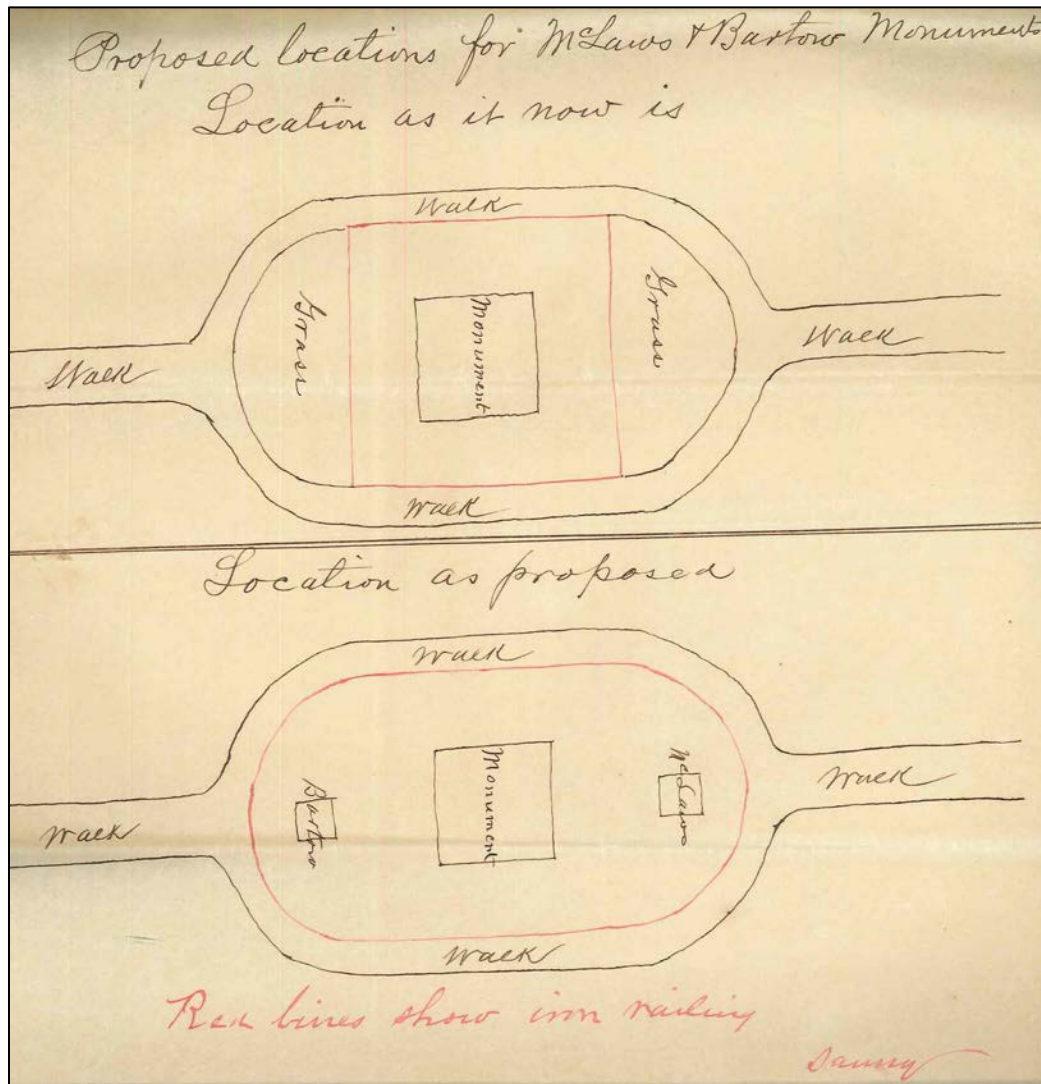 Proposed locations for McLaws & Bartow Monuments
Location as it now is
Walk
Grass
Monument
Grass
Walk
Walk
Walk
Location as proposed
Walk
Bartow
Monument
McLaws
Walk
Walk
Walk
Red lines show iron railing